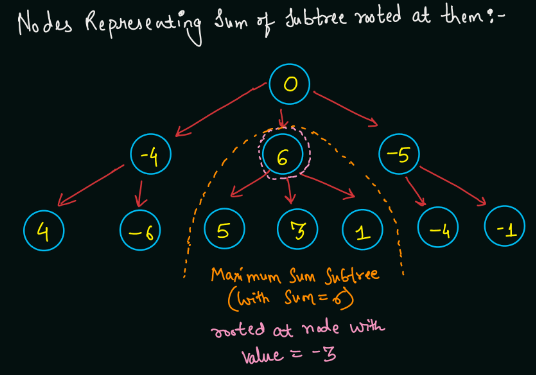 Nodes Representing Sum of Subtree rooted at them:-
0
-4 6 -5
4 -6 5 3 1 -4 -1
Maximum Sum Subtree
(with Sum=6)
rooted at node with
value = -3